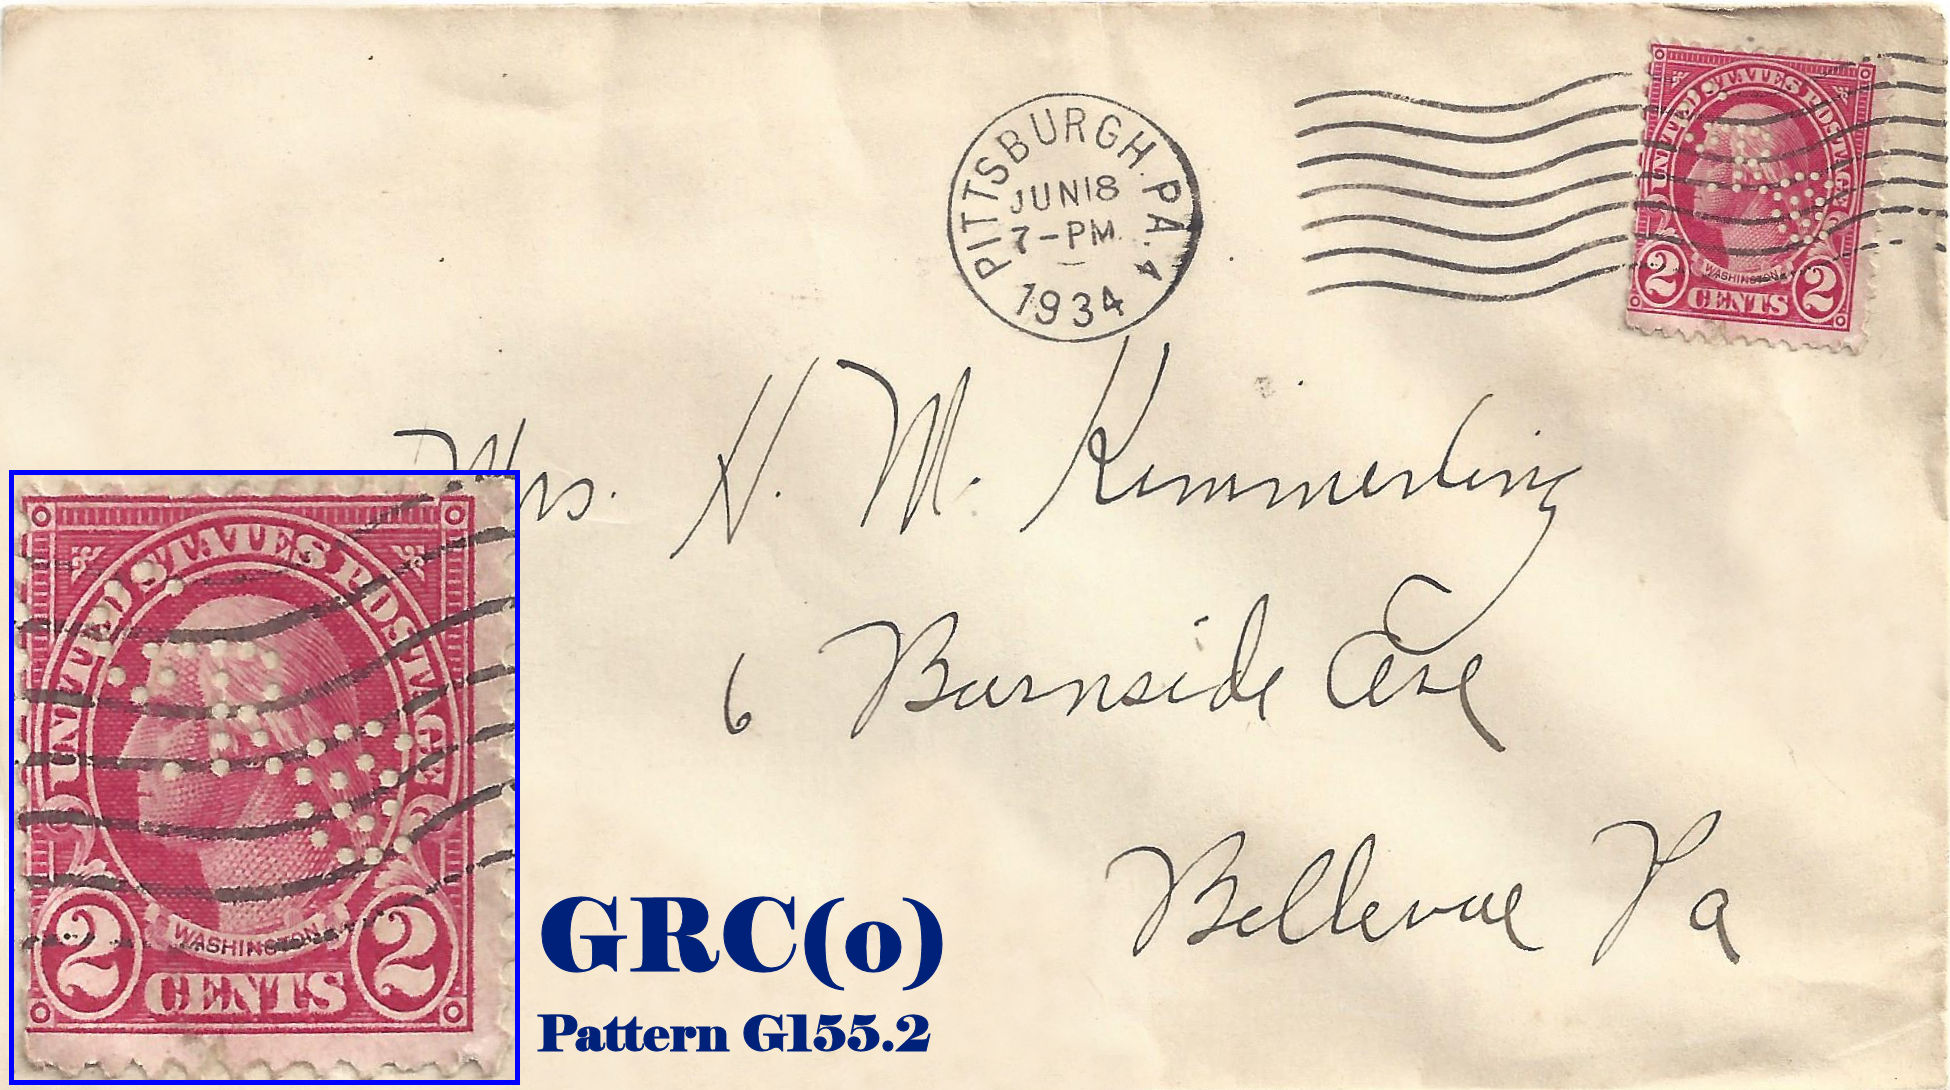 PITTSBURGH, PA. 4
JUN 18
7-PM
1934
UNITED STATES POSTAGE
WASHINGTON
2 CENTS 2
Mrs. H. M. Kimmerling
6 Burnside Ave
Bellevue Pa
UNITED STATES POSTAGE
WASHINGTON
2 CENTS 2
GRC(o)
Pattern G155.2